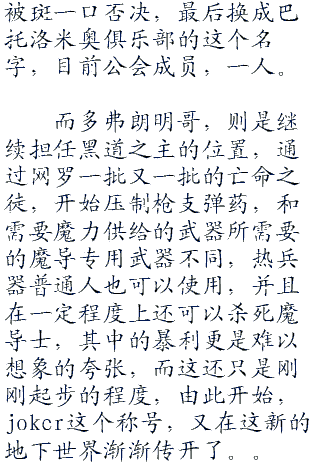 被斑一口否决，最后换成巴
托洛米奥俱乐部的这个名
字，目前公会成员，一人。
而多弗朗明哥，则是继
续担任黑道之主的位置，通
过网罗一批又一批的亡命之
徒，开始压制枪支弹药，和
需要魔力供给的武器所需要
的魔导专用武器不同，热兵
器普通人也可以使用，并且
在一定程度上还可以杀死魔
导士，其中的暴利更是难以
想象的夸张，而这还只是刚
刚起步的程度，由此开始，
joker这个称号，又在这新的
地下世界渐渐传开了。。